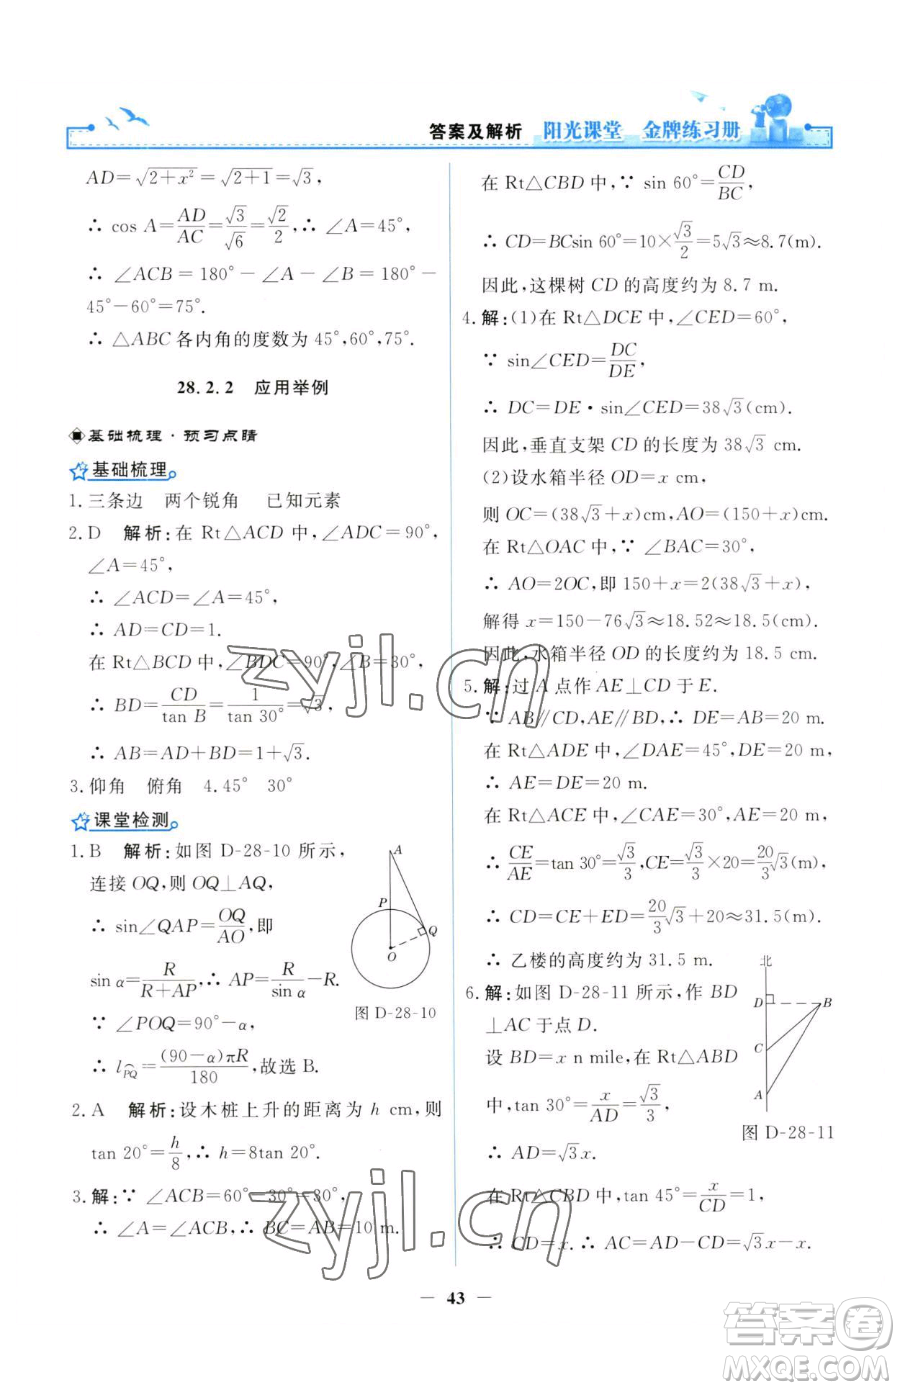 答案及解析 阳光课堂 金牌练习册
AD=√(2+x²)=√(2+1)=√3,
∴ cos A=AD/AC=√3/√6=√2/2,∴ ∠A=45°,
∴ ∠ACB=180°-∠A-∠B=180°-
45°-60°=75°.
∴ △ABC 各内角的度数为 45°,60°,75°.
28.2.2 应用举例
基础梳理·预习点睛
基础梳理
1.三条边 两个锐角 已知元素
2.D 解析:在 Rt△ACD 中,∠ADC=90°,
∠A=45°,
∴ ∠ACD=∠A=45°,
∴ AD=CD=1.
在 Rt△BCD 中,∠BDC=90°,∠B=30°,
∴ BD=CD/tan B=1/tan 30°=√3,
∴ AB=AD+BD=1+√3.
3.仰角 俯角 4.45° 30°
课堂检测
1.B 解析:如图 D-28-10 所示,
连接 OQ,则 OQ⊥AQ,
∴ sin∠QAP=OQ/AO,即
sin α=R/(R+AP),∴ AP=R/sin α-R.
∵ ∠POQ=90°-α,
∴ l⌒PQ=(90-α)πR/180,故选 B.
A
P
Q
O
图 D-28-10
2.A 解析:设木桩上升的距离为 h cm,则
tan 20°=h/8,∴ h=8tan 20°.
3.解:∵ ∠ACB=60°-30°=30°,
∴ ∠A=∠ACB,∴ BC=AB=10 m.
在 Rt△CBD 中,∵ sin 60°=CD/BC,
∴ CD=BCsin 60°=10×√3/2=5√3≈8.7(m).
因此,这棵树 CD 的高度约为 8.7 m.
4.解:(1)在 Rt△DCE 中,∠CED=60°,
∵ sin∠CED=DC/DE,
∴ DC=DE·sin∠CED=38√3(cm).
因此,垂直支架 CD 的长度为 38√3 cm.
(2)设水箱半径 OD=x cm,
则 OC=(38√3+x)cm,AO=(150+x)cm.
在 Rt△OAC 中,∵ ∠BAC=30°,
∴ AO=2OC,即 150+x=2(38√3+x),
解得 x=150-76√3≈18.52≈18.5(cm).
因此,水箱半径 OD 的长度约为 18.5 cm.
5.解:过 A 点作 AE⊥CD 于 E.
∵ AB∥CD,AE∥BD,∴ DE=AB=20 m.
在 Rt△ADE 中,∠DAE=45°,DE=20 m,
∴ AE=DE=20 m.
在 Rt△ACE 中,∠CAE=30°,AE=20 m,
∴ CE/AE=tan 30°=√3/3,CE=√3/3×20=20/3√3(m),
∴ CD=CE+ED=20/3√3+20≈31.5(m).
∴ 乙楼的高度约为 31.5 m.
6.解:如图 D-28-11 所示,作 BD
⊥AC 于点 D.
设 BD=x n mile,在 Rt△ABD
中,tan 30°=x/AD=√3/3,
∴ AD=√3x.
北
D
B
C
A
图 D-28-11
在 Rt△CBD 中,tan 45°=x/CD=1,
∴ CD=x.∴ AC=AD-CD=√3x-x.
43
zyjl.cn
zyjl.cn
答案卷
MXQE.COM